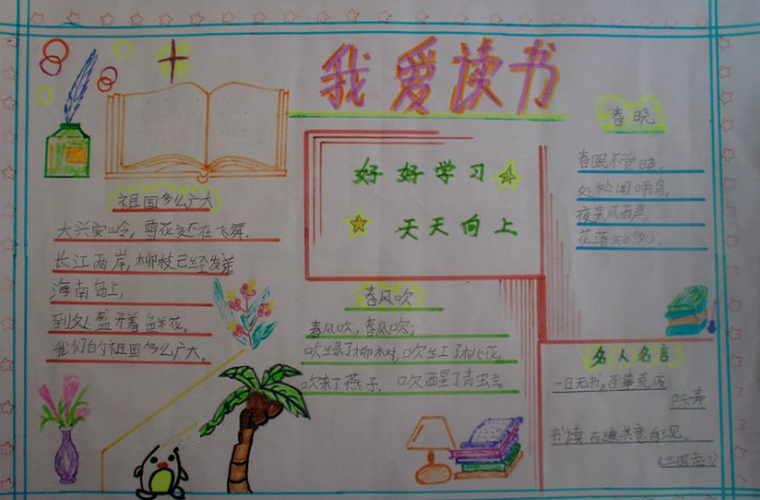 我爱读书
祖国多么广大
大兴安岭，雪花还在飞舞.
长江两岸，柳枝已经发芽
海南岛上，
到处盛开着鲜花。
我们的祖国多么广大。
好好学习
天天向上
春风吹
春风吹，春风吹，
吹绿了柳树，吹红了桃花，
吹来了燕子，吹醒了青虫圭。
春晓
春眠不觉晓，
处处闻啼鸟，
夜来风雨声，
花落知多少。
名人名言
一日无书，百事荒废
陈寿
书读百遍其意自见。
《三国志》